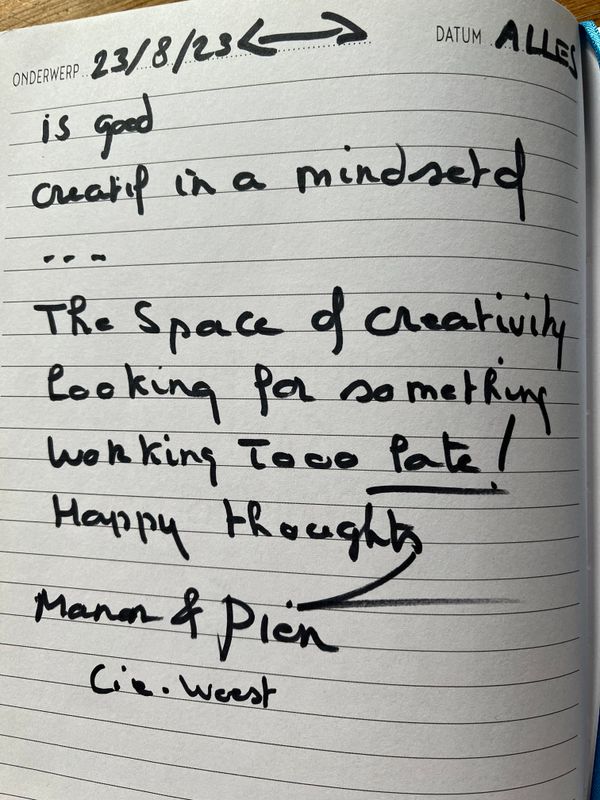 ONDERWERP 23/8/23 DATUM ALLES
is good
creatif in a mindsetd
...
The Space of Creativity
looking for something
working Tooo late!
Happy thoughts
Manon & Pien
Cie. Woest